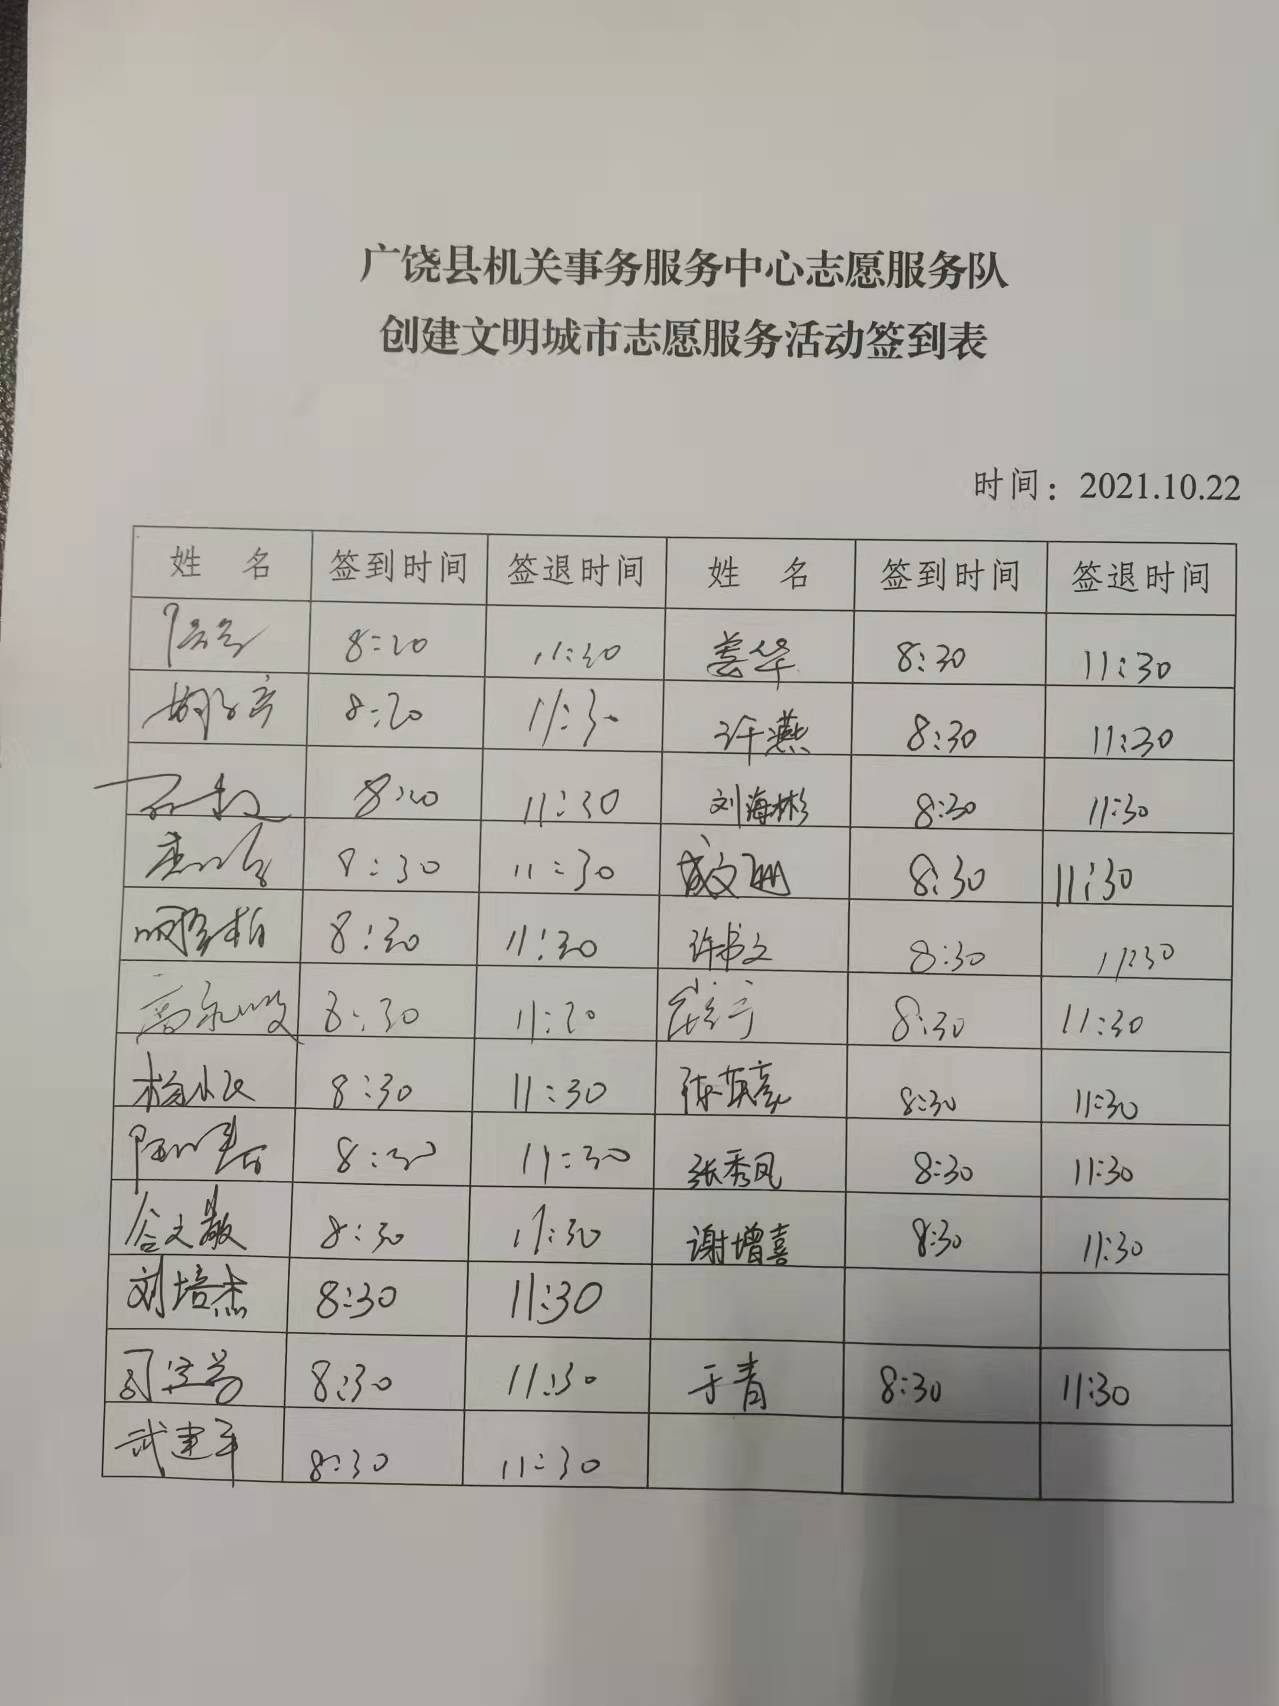 广饶县机关事务服务中心志愿服务队
创建文明城市志愿服务活动签到表
时间：2021.10.22
姓 名 签到时间 签退时间 姓 名 签到时间 签退时间
8:20 11:30 姜华 8:30 11:30
8:20 11:30 许燕 8:30 11:30
8:20 11:30 刘海彬 8:30 11:30
8:30 11:30 成文珊 8:30 11:30
8:30 11:30 许书文 8:30 11:30
8:30 8:30 11:30
杨小民 8:30 11:30 8:30 11:30
8:30 11:30 张秀凤 8:30 11:30
8:30 11:30 谢增喜 8:30 11:30
刘培杰 8:30 11:30
8:30 11:30 于青 8:30 11:30
武建军 8:30 11:30